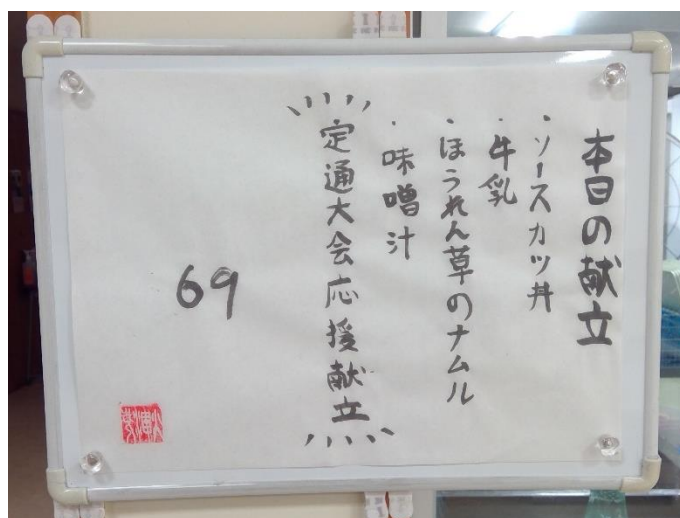 本日の献立
・ソースカツ丼
・牛乳
・ほうれん草のナムル
・味噌汁
定通大会応援献立
69